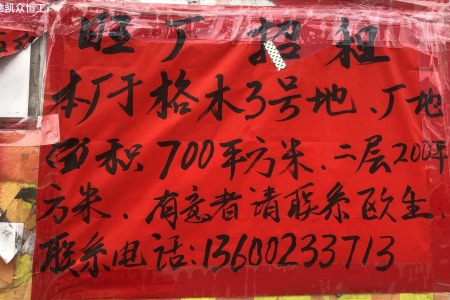 恺众恒工
旺厂招租
本厂于格木3号地、厂地
面积700平方米、二层200平
方米、有意者请联系欧生、
联系电话:13600233713